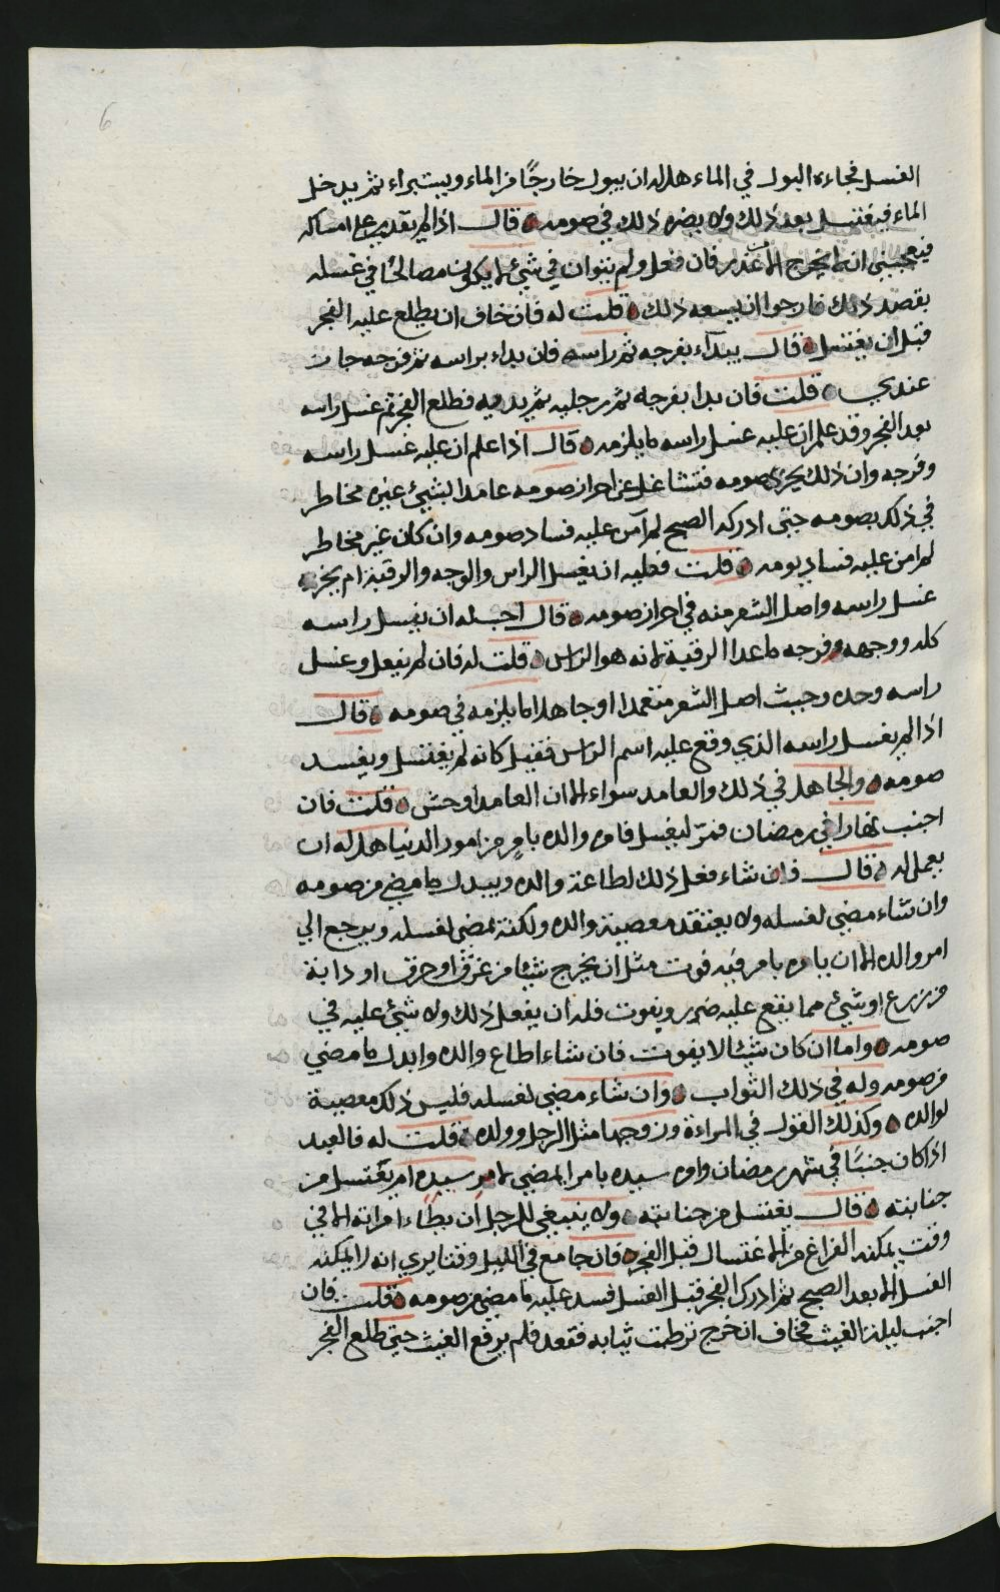 6
الغسل فجاءه البول في الماء هل له ان يبول خارجًا من الماء ويستبراء ثم يدخل
الماء فيغتسل بعد ذلك ولا يضره ذلك في صومه قال اذا لم يقدر على امساكه
فيعجبني انه لا يخرج الا لعذر فان فعل ولم يتوان في شيء لا يكون مصالحًا في غسله
بقصد ذلك فارجوا ان يسعه ذلك قلت له فان خاف ان يطلع عليه الفجر
قبل ان يغتسل قال يبدآء بفرجه ثم راسه فان بداء براسه ثم فرجه جاز
عندي قلت فان بدا بفرجه ثم رجليه ثم يديه فطلع الفجر ثم غسل راسه
بعد الفجر وقد علم ان عليه غسل راسه ما يلزمه قال اذا علم ان عليه غسل راسه
وفرجه وان ذلك يحرز صومه فتشاغل عن احراز صومه عامدا لشيئ غيره مخاطر
في ذلك بصومه حتى ادركه الصبح لم آمن عليه فساد صومه وان كان غير مخاطر
لم امن عليه فساد يومه قلت فعليه ان يغسل الراس والوجه والرقبة ام يجزيه
غسل راسه واصل الشعر منه في احراز صومه قال احب له ان يغسل راسه
كله ووجهه وفرجه ما عدا الرقبة لانه هو الراس قلت له فان لم يفعل وغسل
راسه وحده وحيث اصل الشعر متعمدا او جاهلا ما يلزمه في صومه قال
اذا لم يغسل راسه الذي وقع عليه اسم الراس فقيل كانه لم يغتسل ويفسد
صومه والجاهل في ذلك والعامد سواء الا ان العامد اوحش قلت فان
اجنب نهارا في رمضان فمرّ ليغسل فامره والده بامرٍ من امور الدنيا هل له ان
يعمل له قال فان شاء فعل ذلك لطاعة والده ويبدل ما مضى من صومه
وان شاء مضى لغسله ولا يعتقد معصية والده ولكنه يمضي لغسله ويرجع الي
امر والده الا ان يامره بامر فيه فوت مثل ان يخرج شيئا من غرق او حرق او دابة
من زرع او شيئ مما يقع عليه ضرر ويفوت فله ان يفعل ذلك ولا شيئ عليه في
صومه واما ان كان شيئا لا يفوت فان شاء اطاع والده وابدل ما مضي
من صومه وله في ذلك الثواب وان شاء مضى لغسله فليس ذلك معصية
لوالده وكذلك القول في المراءة وزوجها مثل الرجل وولده قلت له فالعبد
اذا كان جنبًا في شهر رمضان وامره سيده بامر ايمضي لامر سيده ام يغتسل من
جنابته قال يغتسل من جنابته ولا ينبغي للرجل ان يطاء امراته الا في
وقت يمكنه الفراغ من الاغتسال قبل الفجر فان جامع في الليل وقتا يري انه لا يمكنه
الغسل الا بعد الصبح ثم ادرك الفجر قبل الغسل فسد عليه ما مضى من صومه قلت فان
اجنب ليلة الغيث فخاف ان خرج ترطبت ثيابه فقعد فلم يرفع الغيث حتي طلع الفجر